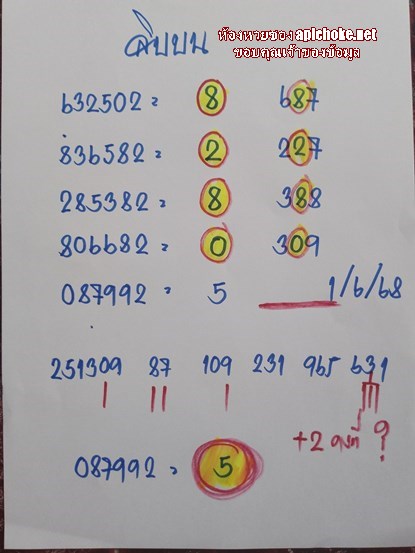 สิบบน
ห้องหวยซอง apichoke.net
ขอบคุณเจ้าของข้อมูล
632502 = 8 687
836582 = 2 227
285382 = 8 388
806682 = 0 309
087992 = 5 1/6/68
251309 87 109 231 965 631
+2 คงที่ ?
087992 = 5